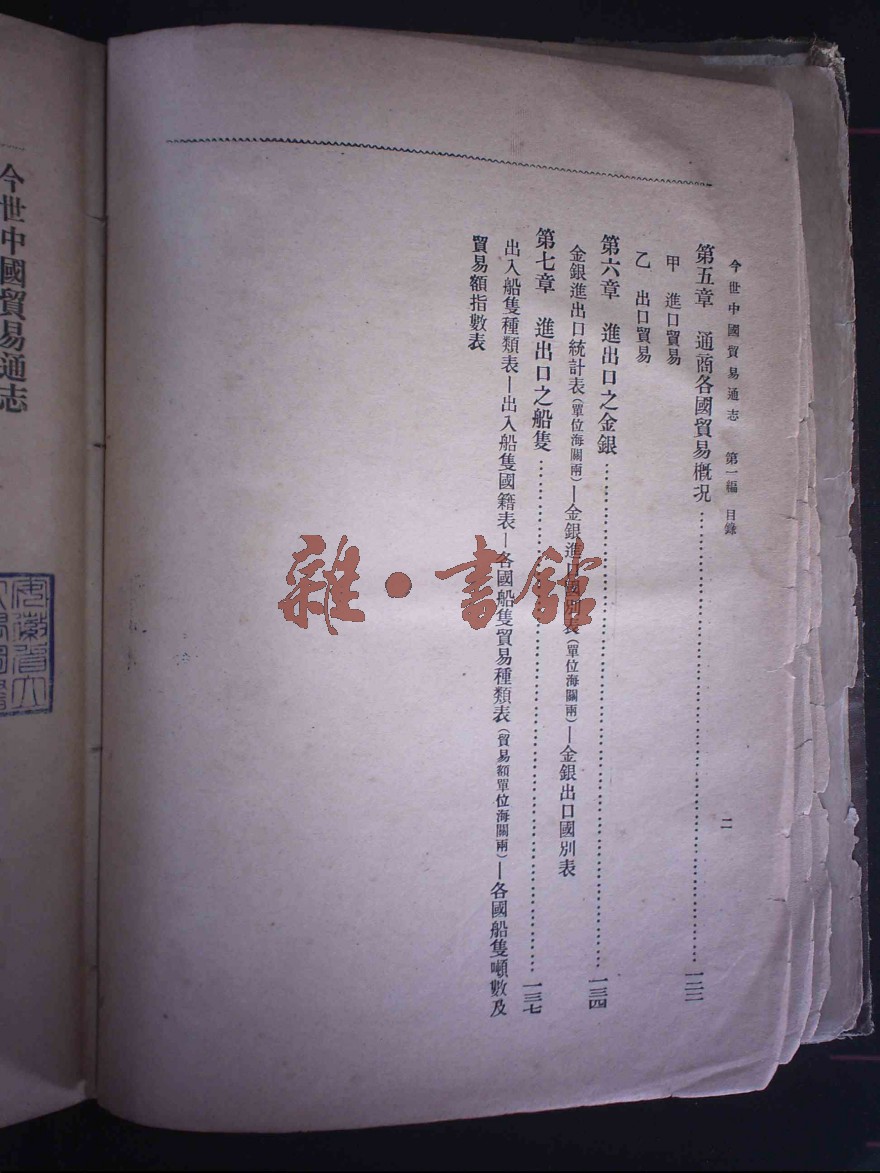 今世中國貿易通志　第一編　目錄
二
第五章　通商各國貿易概況……一二二
甲　進口貿易
乙　出口貿易
第六章　進出口之金銀……一三四
金銀進出口統計表(單位海關兩)—金銀進口國別表(單位海關兩)—金銀出口國別表
第七章　進出口之船隻……一三七
出入船隻種類表—出入船隻國籍表—各國船隻貿易種類表(貿易額單位海關兩)—各國船隻噸數及
貿易額指數表
今世中國貿易通志
雜·書館